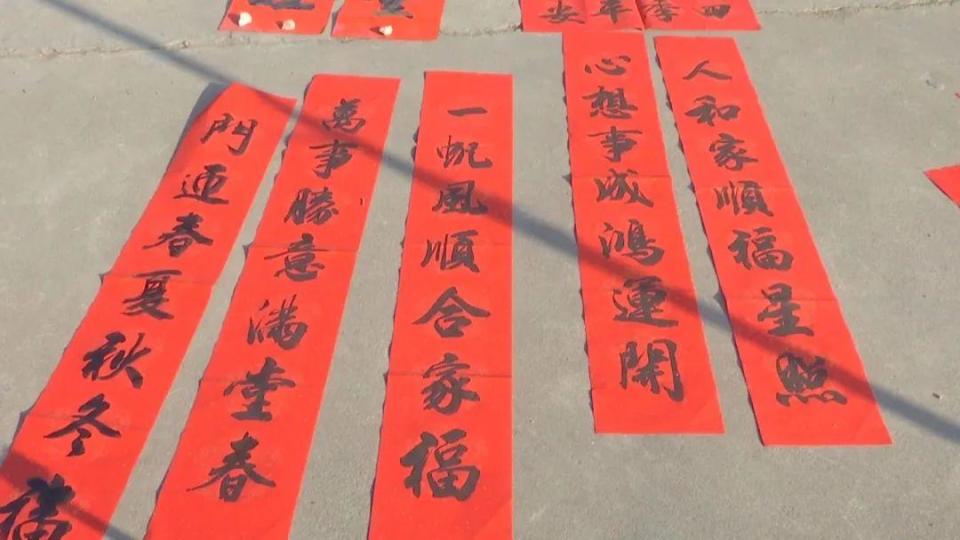 四季平安
人和家順福星照
心想事成鴻運開
一帆風順合家福
萬事勝意滿堂春
門迎春夏秋冬福